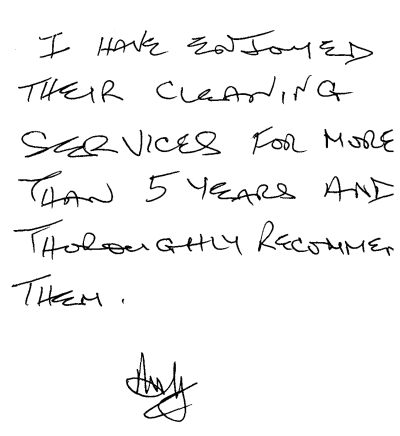 I HAVE ENJOYED
THEIR CLEANING
SERVICES FOR MORE
THAN 5 YEARS AND
THOROUGHLY RECOMME
THEM.
Andy